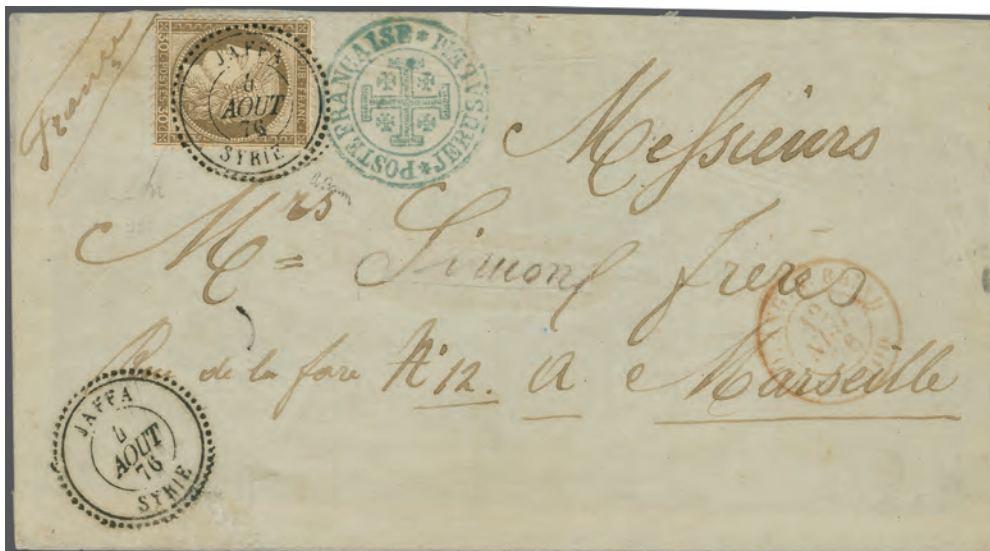 France
30C·POSTES·30C
REPUB·FRANC
JAFFA
4
AOUT
76
SYRIE
*POSTE FRANÇAISE*JERUSALEM
Messieurs
Mrs Simond frères
Rue de la fare N° 12. A Marseille
JAFFA
4
AOUT
76
SYRIE